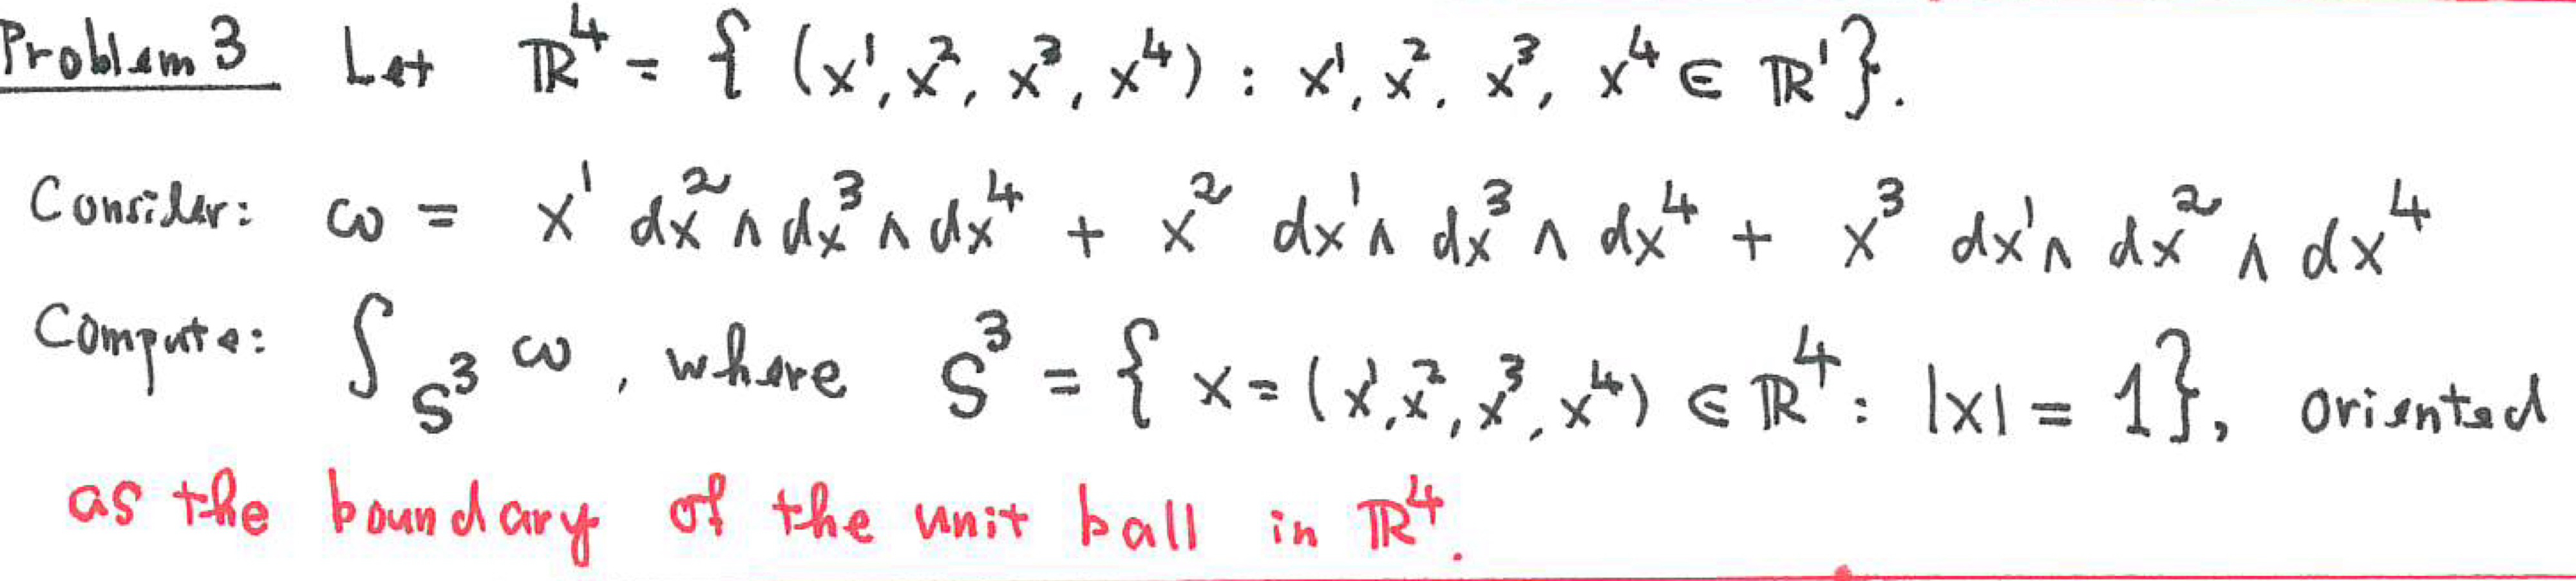 Problem 3 Let ℝ⁴ = { (x¹, x², x³, x⁴) : x¹, x², x³, x⁴ ∈ ℝ¹}.
Consider: ω = x¹ dx² ∧ dx³ ∧ dx⁴ + x² dx¹ ∧ dx³ ∧ dx⁴ + x³ dx¹ ∧ dx² ∧ dx⁴
Compute: ∫_S³ ω, where S³ = { x = (x¹, x², x³, x⁴) ∈ ℝ⁴ : |x| = 1}, oriented
as the boundary of the unit ball in ℝ⁴.